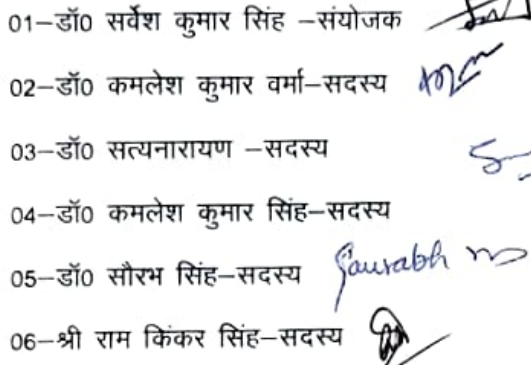 01–डॉ0 सर्वेश कुमार सिंह –संयोजक
02–डॉ0 कमलेश कुमार वर्मा–सदस्य
03–डॉ0 सत्यनारायण –सदस्य
04–डॉ0 कमलेश कुमार सिंह–सदस्य
05–डॉ0 सौरभ सिंह–सदस्य Saurabh
06–श्री राम किंकर सिंह–सदस्य